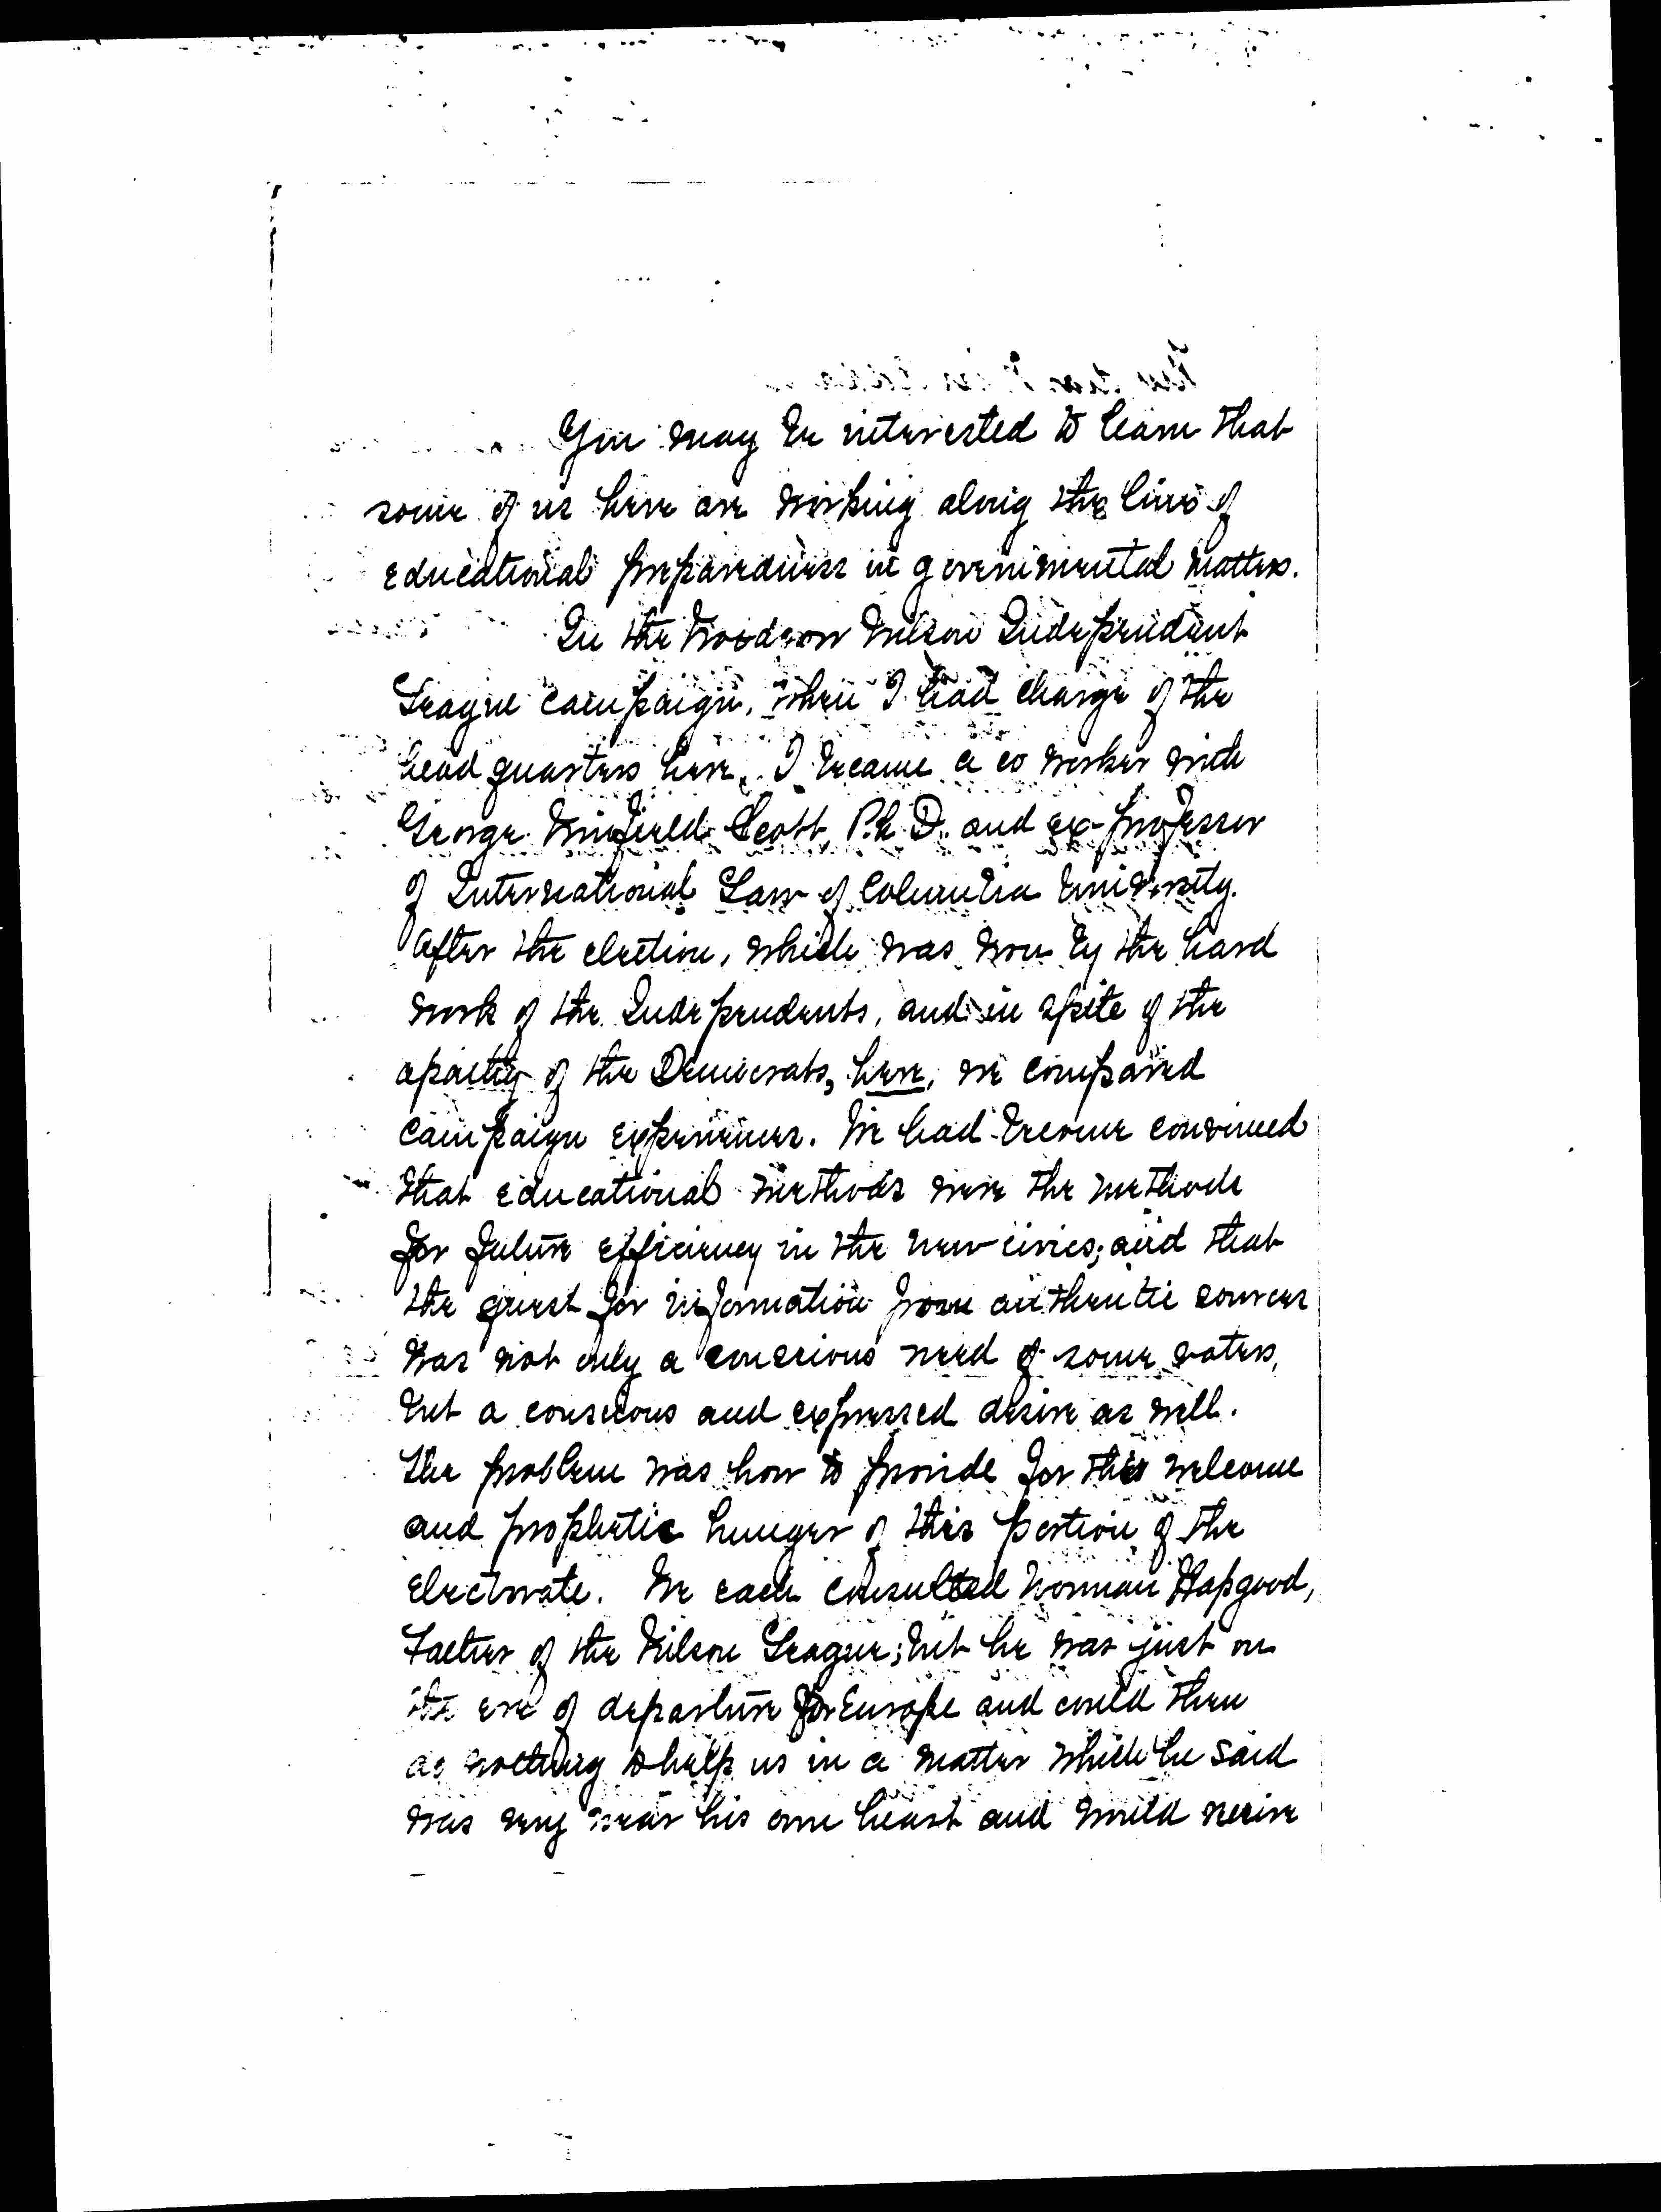 You may be interested to learn that
some of us here are working along the line of
educational preparedness in governmental matters.
In the Woodrow Wilson Independent
League campaign, when I had charge of the
head quarters here, I became a co worker with
George Winfield Scott, Ph D. and ex-professor
of International Law of Columbia University.
After the election, which was won by the hard
work of the Independents, and in spite of the
apathy of the Democrats, here, we compared
campaign experiences. We had become convinced
that educational methods were the methods
for future efficiency in the new civics; and that
the quest for information from authentic sources
was not only a conscious need of some voters,
but a conscious and expressed desire as well.
The problem was how to provide for this welcome
and prophetic hunger of this portion of the
electorate. We each consulted Norman Hapgood,
Father of the Wilson League; but he was just on
the eve of departure for Europe and could then
do nothing to help us in a matter which he said
was very near his own heart and would receive